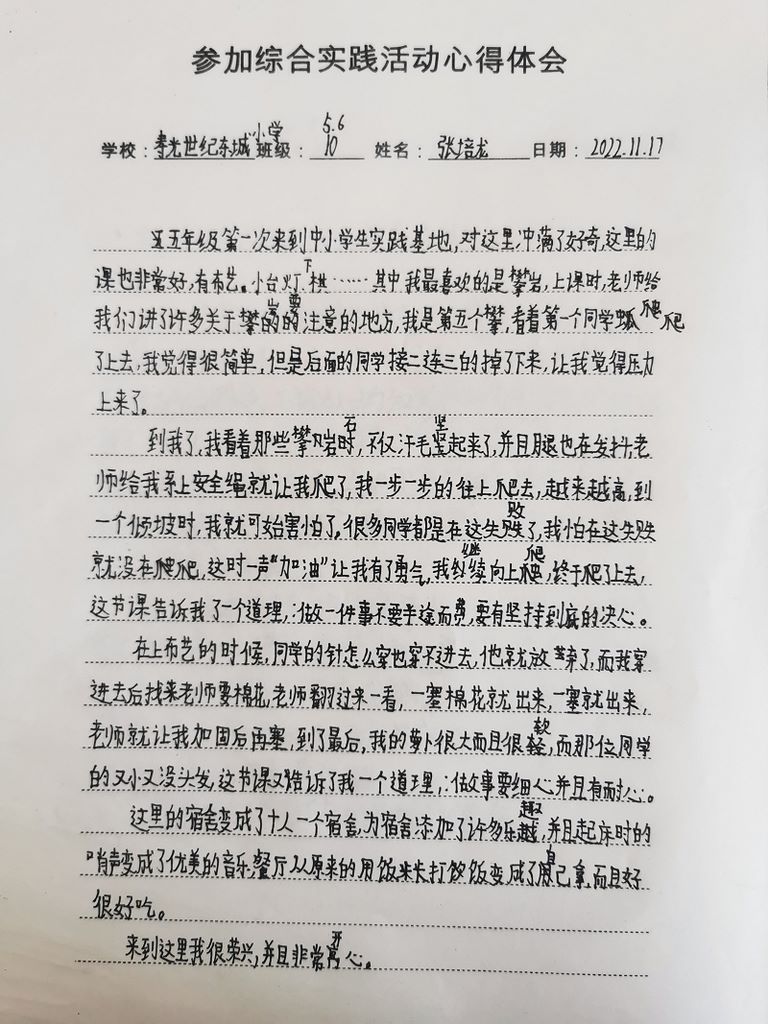 参加综合实践活动心得体会
学校：寿光世纪东城小学 班级：5.6 10 姓名：张培龙 日期：2022.11.17
五年级第一次来到中小学生实践基地，对这里冲满了好奇，这里的
课也非常好，有布艺。小台灯 下棋……其中我最喜欢的是攀岩，上课时，老师给
我们讲了许多关于攀岩的要注意的地方，我是第五个攀，看着第一个同学爬爬
了上去，我觉得很简单，但是后面的同学接二连三的掉了下来，让我觉得压力
上来了。
到我了，我看着那些攀岩石时，不仅汗毛竖起来了，并且腿也在发抖，老
师给我系上安全绳就让我爬了，我一步一步的往上爬去，越来越高，到
一个倾坡时，我就可始害怕了，很多同学都是在这失败了，我怕在这失败
就没在爬爬，这时一声“加油”让我有了勇气，我继续向上爬，终于爬了上去，
这节课告诉我了一个道理，：做一件事不要半途而费，要有坚持到底的决心。
在上布艺的时候，同学的针怎么穿也穿不进去，他就放弃了，而我穿
进去后找来老师要棉花，老师翻过来一看，一塞棉花就出来，一塞就出来，
老师就让我加固后再塞，到了最后，我的萝卜很大而且很软，而那位同学
的又小又没头发，这节课又告诉了我一个道理，：做事要细心并且有耐心。
这里的宿舍变成了十人一个宿舍，为宿舍添加了许多乐趣，并且起床时的
哨声变成了优美的音乐，餐厅从原来的用饭米卡打饮饭变成了自己拿，而且好
很好吃。
来到这里我很荣兴，并且非常开心。